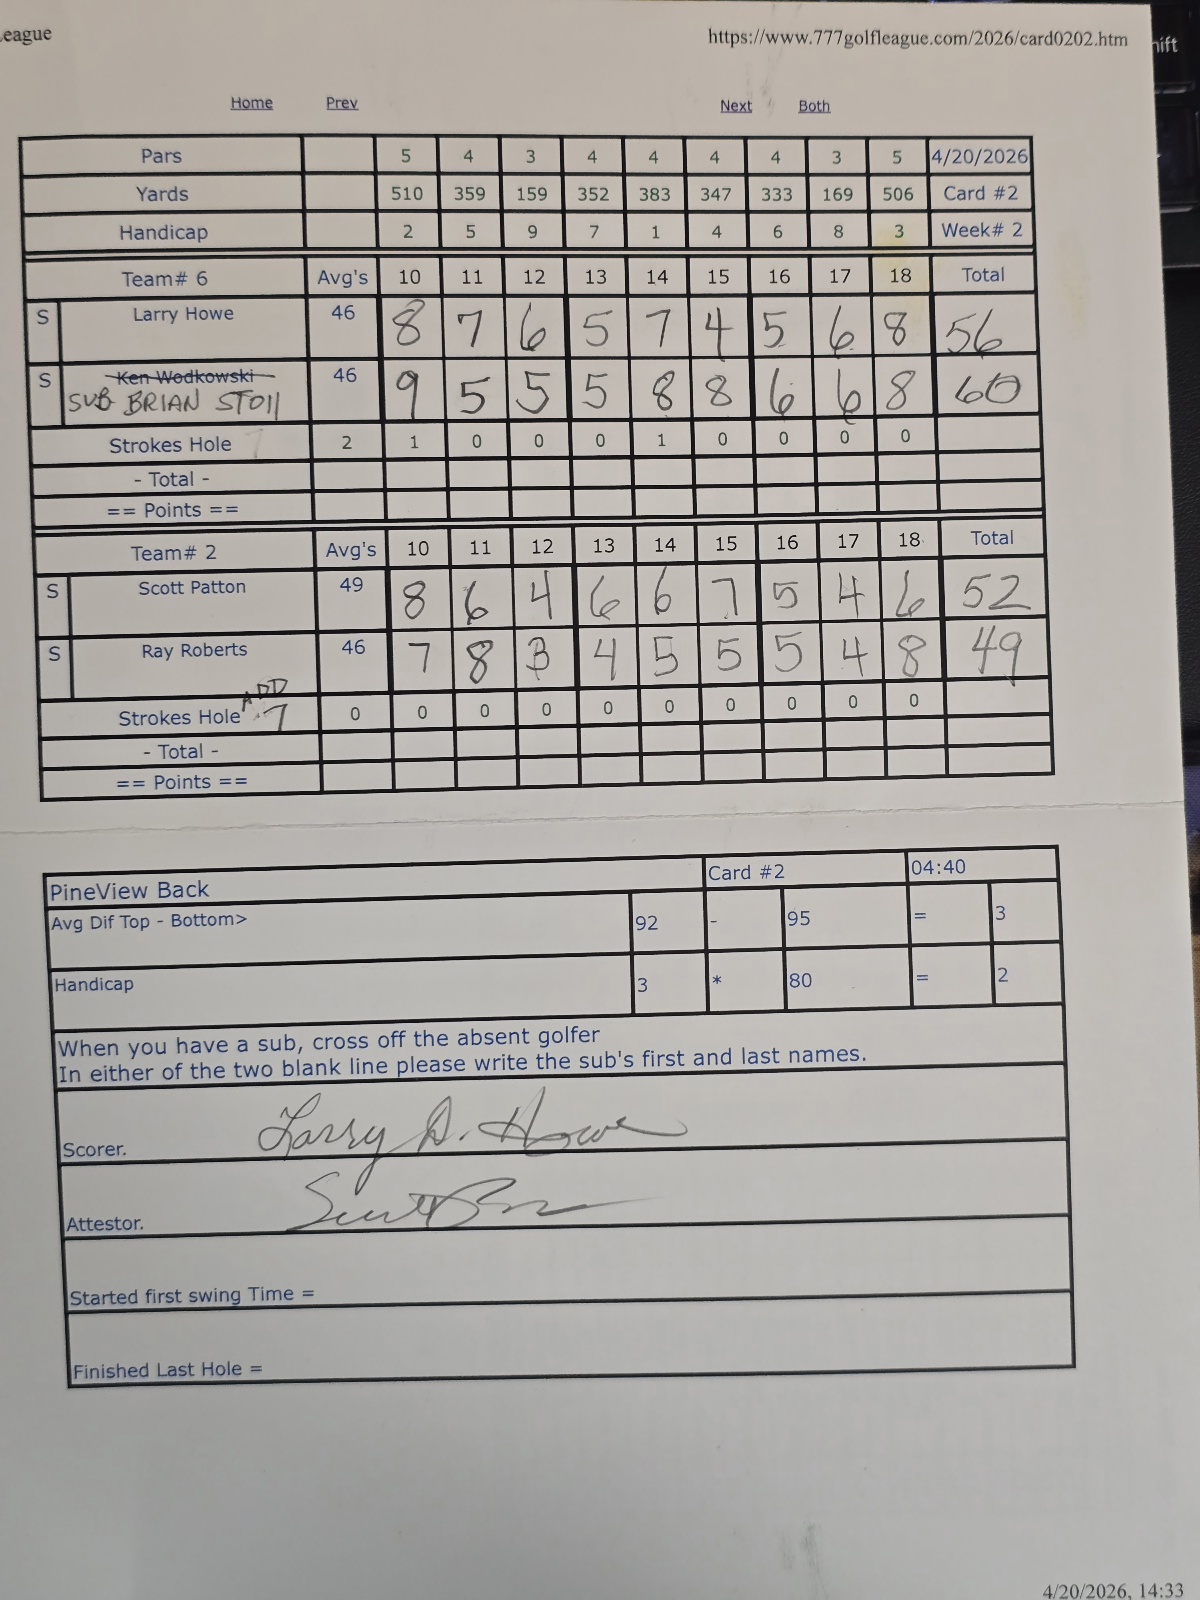 .eague https://www.777golfleague.com/2026/card0202.htm
ift
Home Prev Next Both
Pars 5 4 3 4 4 4 4 3 5 4/20/2026
Yards 510 359 159 352 383 347 333 169 506 Card #2
Handicap 2 5 9 7 1 4 6 8 3 Week# 2
Team# 6 Avg's 10 11 12 13 14 15 16 17 18 Total
S Larry Howe 46 8 7 6 5 7 4 5 6 8 56
S Ken Wodkowski 46 9 5 5 5 8 8 6 6 8 60
SUB BRIAN STOll
Strokes Hole 7 2 1 0 0 0 1 0 0 0 0
- Total -
== Points ==
Team# 2 Avg's 10 11 12 13 14 15 16 17 18 Total
S Scott Patton 49 8 6 4 6 6 7 5 4 6 52
S Ray Roberts 46 7 8 3 4 5 5 5 4 8 49
ADD
Strokes Hole 7 0 0 0 0 0 0 0 0 0 0
- Total -
== Points ==
PineView Back Card #2 04:40
Avg Dif Top - Bottom> 92 - 95 = 3
Handicap 3 * 80 = 2
When you have a sub, cross off the absent golfer
In either of the two blank line please write the sub's first and last names.
Scorer. Larry D. Howe
Attestor.
Started first swing Time =
Finished Last Hole =
4/20/2026, 14:33